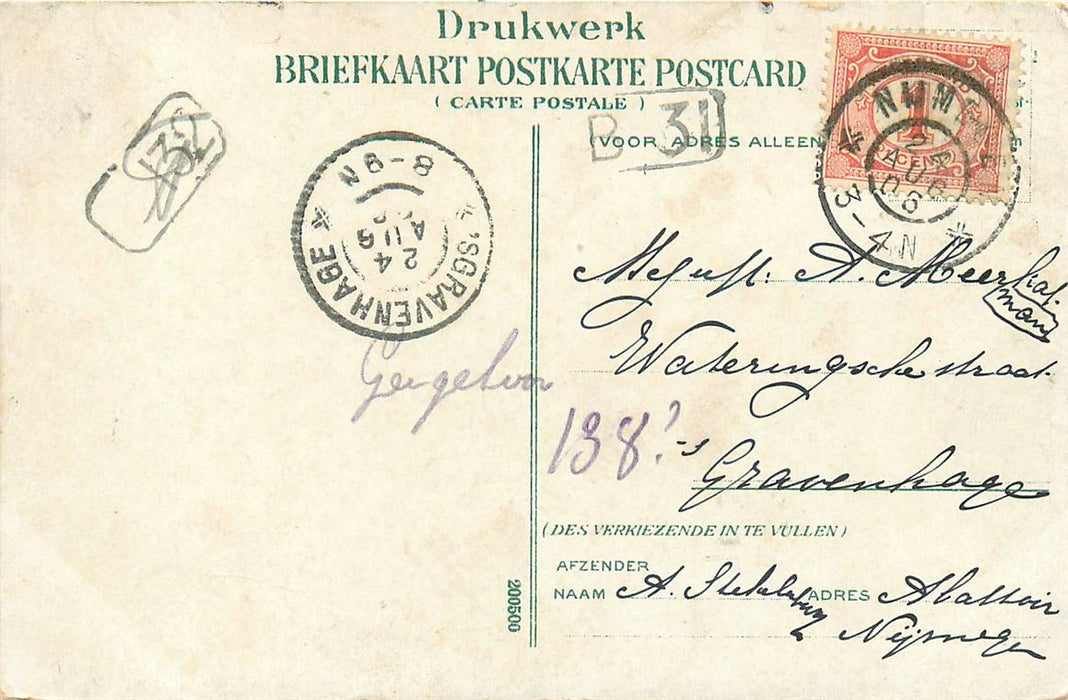 Drukwerk
BRIEFKAART POSTKARTE POSTCARD
( CARTE POSTALE )
(VOOR ADRES ALLEEN
B 31
NIJME
24
AUG
06
3-4N
8-9N
24 AUG
'SGRAVENHAGE
Mejuff. A. Meer
man
Wateringsche straat
138?
-s Gravenhage
(DES VERKIEZENDE IN TE VULLEN)
AFZENDER
NAAM A. ADRES
Nijmegen
200500